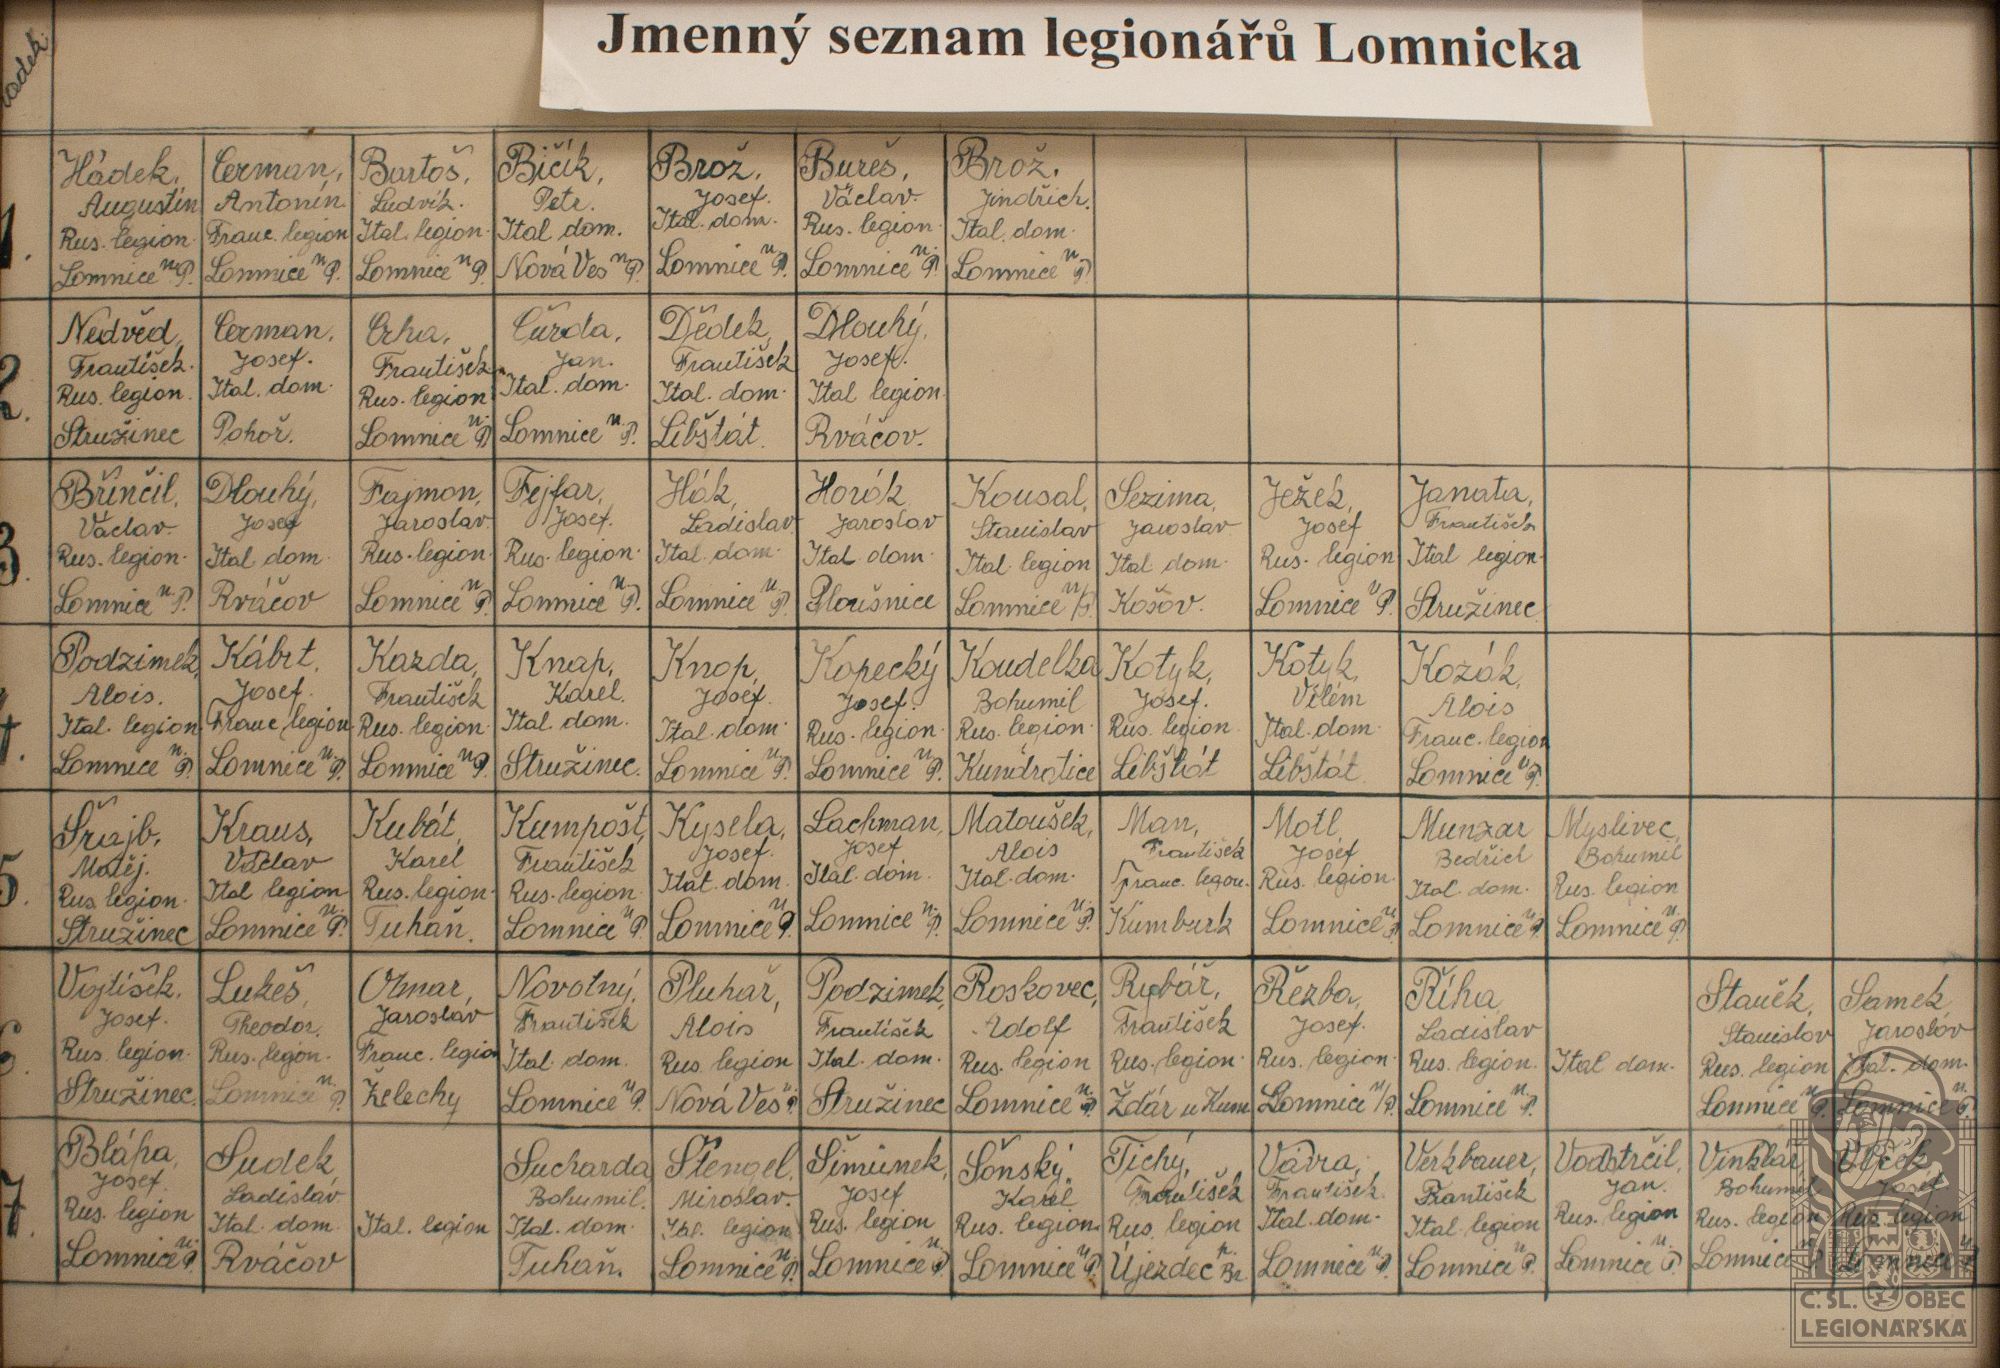 Jmenný seznam legionářů Lomnicka
1.
Hádek,
Augustin
Rus. legion
Lomnice n P.
Čerman,
Antonín
Franc. legion
Lomnice n P.
Bartoš,
Ludvík.
Ital. legion.
Lomnice n P.
Bičík,
Petr.
Ital dom.
Nová Ves n P.
Brož,
Josef.
Ital. dom.
Lomnice n P.
Bureš,
Václav.
Rus. legion.
Lomnice n. P.
Brož.
Jindřich.
Ital. dom.
Lomnice n P.
2.
Nedvěd,
František.
Rus. legion.
Stružinec
Čerman.
Josef.
Ital. dom.
Pohoř.
Crha,
František
Rus. legion
Lomnice n. P.
Čurda,
Jan.
Ital. dom.
Lomnice n. P.
Dědek,
František
Ital. dom.
Libštát.
Dlouhý,
Josef.
Ital legion.
Rváčov.
3.
Břinčil,
Václav.
Rus. legion.
Lomnice n P.
Dlouhý,
Josef
Ital. dom.
Rváčov
Fajmon,
Jaroslav.
Rus. legion.
Lomnice n. P.
Fejfar,
Josef.
Rus. legion.
Lomnice n. P.
Hák,
Ladislav
Ital. dom.
Lomnice n. P.
Horák
Jaroslav
Ital. dom.
Ploušnice
Kousal,
Stanislav
Ital. legion
Lomnice n/P.
Sezima,
Jaroslav.
Ital dom.
Košov.
Ježek,
Josef
Rus. legion
Lomnice n P.
Janata,
František
Ital legion.
Stružinec
4.
Podzimek,
Alois.
Ital. legion
Lomnice n. P.
Kábrt,
Josef.
Franc. legion.
Lomnice n. P.
Kazda,
František
Rus. legion.
Lomnice n P.
Knap,
Karel.
Ital. dom.
Stružinec.
Knop,
Josef.
Ital. dom.
Lomnice n. P.
Kopecký
Josef.
Rus. legion.
Lomnice n. P.
Koudelka
Bohumil
Rus. legion.
Kundratice
Kotyk,
Josef.
Rus. legion.
Libštát
Kotyk,
Vilém
Ital. dom.
Libštát.
Kozák,
Alois
Franc. legion
Lomnice n P.
5.
Šrajb,
Matěj.
Rus. legion.
Stružinec
Kraus,
Václav
Ital legion
Lomnice n. P.
Kubát,
Karel
Rus. legion.
Tuhaň.
Kumpošt,
František
Rus. legion.
Lomnice n P.
Kysela,
Josef.
Ital. dom.
Lomnice n P.
Lachman,
Josef
Ital. dom.
Lomnice n. P.
Matoušek,
Alois
Ital. dom.
Lomnice n. P.
Man,
František
Franc. legion.
Kumburk
Motl,
Josef
Rus. legion.
Lomnice n. P.
Munzar
Bedřich
Ital. dom.
Lomnice n P.
Myslivec,
Bohumil
Rus. legion
Lomnice n. P.
6.
Vojtíšek,
Josef.
Rus. legion.
Stružinec.
Lukeš,
Theodor.
Rus. legion.
Lomnice n. P.
Otmar,
Jaroslav
Franc. legion
Želechy
Novotný,
František
Ital. dom.
Lomnice n P.
Pluhař,
Alois
Rus. legion
Nová Ves n. P.
Podzimek,
František
Ital. dom.
Stružinec
Roskovec,
Adolf
Rus. legion
Lomnice n. P.
Rybář,
František
Rus. legion.
Ždár u Kum
Řezba,
Josef.
Rus. legion.
Lomnice n/P.
Říha
Ladislav
Rus. legion.
Lomnice n P.
Ital dom.
Staněk,
Stanislav
Rus. legion
Lomnice n P.
Samek
Jaroslav
Ital. dom.
Lomnice n. P.
7.
Bláha,
Josef.
Rus. legion
Lomnice n. P.
Sudek
Ladislav
Ital. dom.
Rváčov
Ital. legion
Sucharda
Bohumil.
Ital. dom.
Tuhaň.
Štengel,
Miroslav.
Ital. legion
Lomnice n. P.
Šimůnek,
Josef
Rus. legion
Lomnice n. P.
Šonský,
Karel.
Rus. legion.
Lomnice n P.
Tichý,
František
Rus. legion
Újezdec p. Br.
Vávra,
František.
Ital. dom.
Lomnice n. P.
Verkbauer,
František
Ital legion
Lomnice n P.
Vodstrčil,
Jan.
Rus. legion
Lomnice n. P.
Vinklář
Bohumil
Rus. legion
Lomnice n P.
Josef
Rus. legion
Lomnice n P.
Č. SL. OBEC
LEGIONÁŘSKÁ